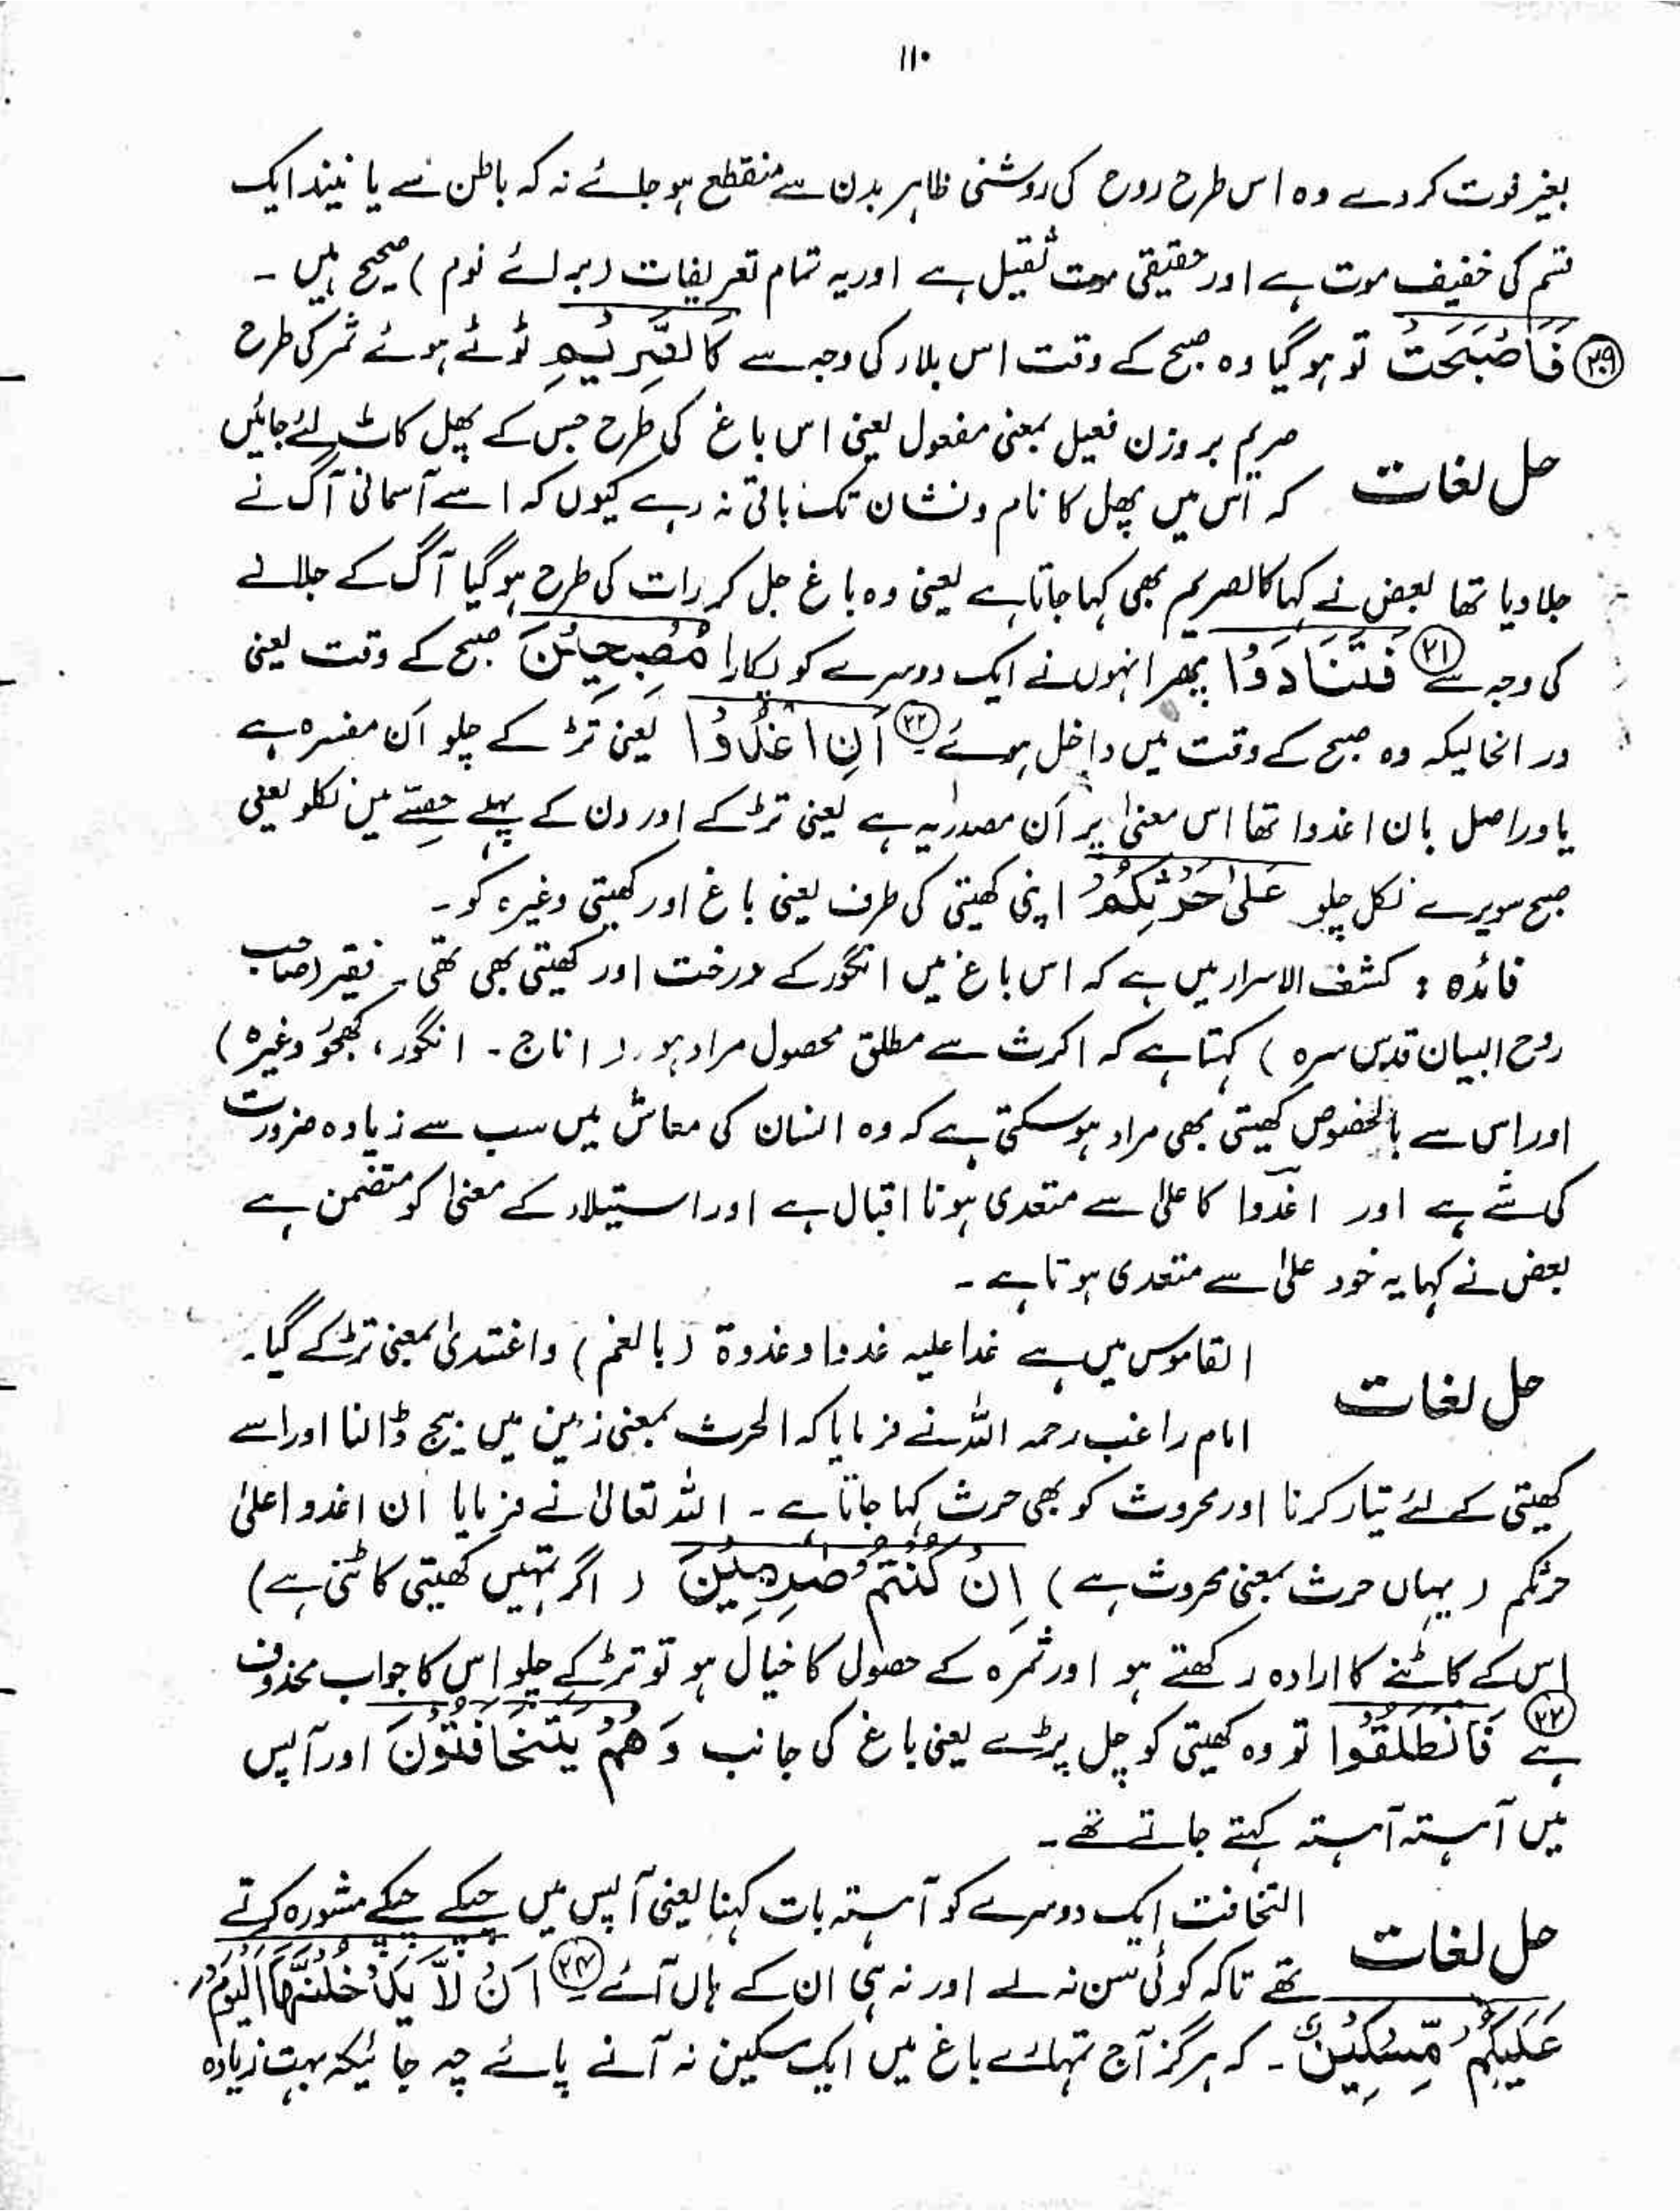 ۱۱۰
بغیر فوت کردے وہ اس طرح روح کی روشنی ظاہر بدن سے منقطع ہو جائے نہ کہ باطن سے یا نیند ایک
قسم کی خفیف موت ہے اور حقیقی موت ثقیل ہے اور یہ تمام تعریفات (برائے نوم) صحیح ہیں ۔
فَاَصْبَحَتْ تو ہوگیا وہ صبح کے وقت اس بلار کی وجہ سے کَالصَّرِیْمِ ٹوٹے ہوئے ثمر کی طرح
حل لغات صریم بروزن فعیل بمعنی مفعول یعنی اس باغ کی طرح جس کے پھل کاٹ لئے جائیں
کہ اس میں پھل کا نام و نشان تک باقی نہ رہے کیوں کہ اسے آسمانی آگ نے
جلا دیا تھا بعض نے کہا کالصریم بھی کہا جاتا ہے یعنی وہ باغ جل کر رات کی طرح ہوگیا آگ کے جلانے
کی وجہ سے ۲۱ فَتَنَادَوْا پھر انہوں نے ایک دوسرے کو پکارا مُصْبِحِیْنَ صبح کے وقت یعنی
در انحالیکہ وہ صبح کے وقت میں داخل ہوئے ۲۲ اَنِ اغْدُوْا یعنی تڑکے چلو اَن مفسرہ ہے
یا دراصل بان اغدوا تھا اس معنیٰ پر اَن مصدریہ ہے یعنی تڑکے اور دن کے پہلے حصّے میں نکلو یعنی
صبح سویرے نکل چلو عَلٰی حَرْثِکُمْ اپنی کھیتی کی طرف یعنی باغ اور کھیتی وغیرہ کو ۔
فائدہ : کشف الاسرار میں ہے کہ اس باغ میں انگور کے درخت اور کھیتی بھی تھی ۔ فقیر (صاحب
روح البیان قدس سرہ) کہتا ہے کہ اکرث سے مطلق محصول مراد ہو (اناج ۔ انگور ، کھجور وغیرہ)
اور اس سے بالخصوص کھیتی بھی مراد ہوسکتی ہے کہ وہ انسان کی معاش میں سب سے زیادہ ضرورت
کی شے ہے اور اغدوا کا علیٰ سے متعدی ہونا اقبال ہے اور استیلاء کے معنیٰ کو متضمن ہے
بعض نے کہا یہ خود علیٰ سے متعدی ہوتا ہے ۔
حل لغات القاموس میں ہے غدا علیہ غدوا وغدوۃ (بالغم) واغتدیٰ بمعنی تڑکے گیا ۔
امام راغب رحمہ اللہ نے فرمایا کہ الحرث بمعنی زمین میں بیج ڈالنا اور اسے
کھیتی کے لئے تیار کرنا اور محروث کو بھی حرث کہا جاتا ہے ۔ اللہ تعالیٰ نے فرمایا ان اغدوا علیٰ
حرثکم (یہاں حرث بمعنی محروث ہے) اِنْ کُنْتُمْ صٰرِمِیْنَ (اگر تمہیں کھیتی کاٹنی ہے)
اس کے کاٹنے کا ارادہ رکھتے ہو اور ثمرہ کے حصول کا خیال ہو تو تڑکے چلو اس کا جواب محذوف
ہے فَانْطَلَقُوْا تو وہ کھیتی کو چل پڑے یعنی باغ کی جانب وَھُمْ یَتَخَافَتُوْنَ اور آپس
میں آہستہ آہستہ کہتے جاتے تھے ۔
حل لغات التخافت ایک دوسرے کو آہستہ بات کہنا یعنی آپس میں چپکے چپکے مشورہ کرتے
تھے تاکہ کوئی سن نہ لے اور نہ ہی ان کے ہاں آئے ۲۴ اَنْ لَّا یَدْخُلَنَّھَا الْیَوْمَ
عَلَیْکُمْ مِّسْکِیْنٌ ۔ کہ ہرگز آج تمہارے باغ میں ایک مسکین نہ آنے پائے چہ جائیکہ بہت زیادہ